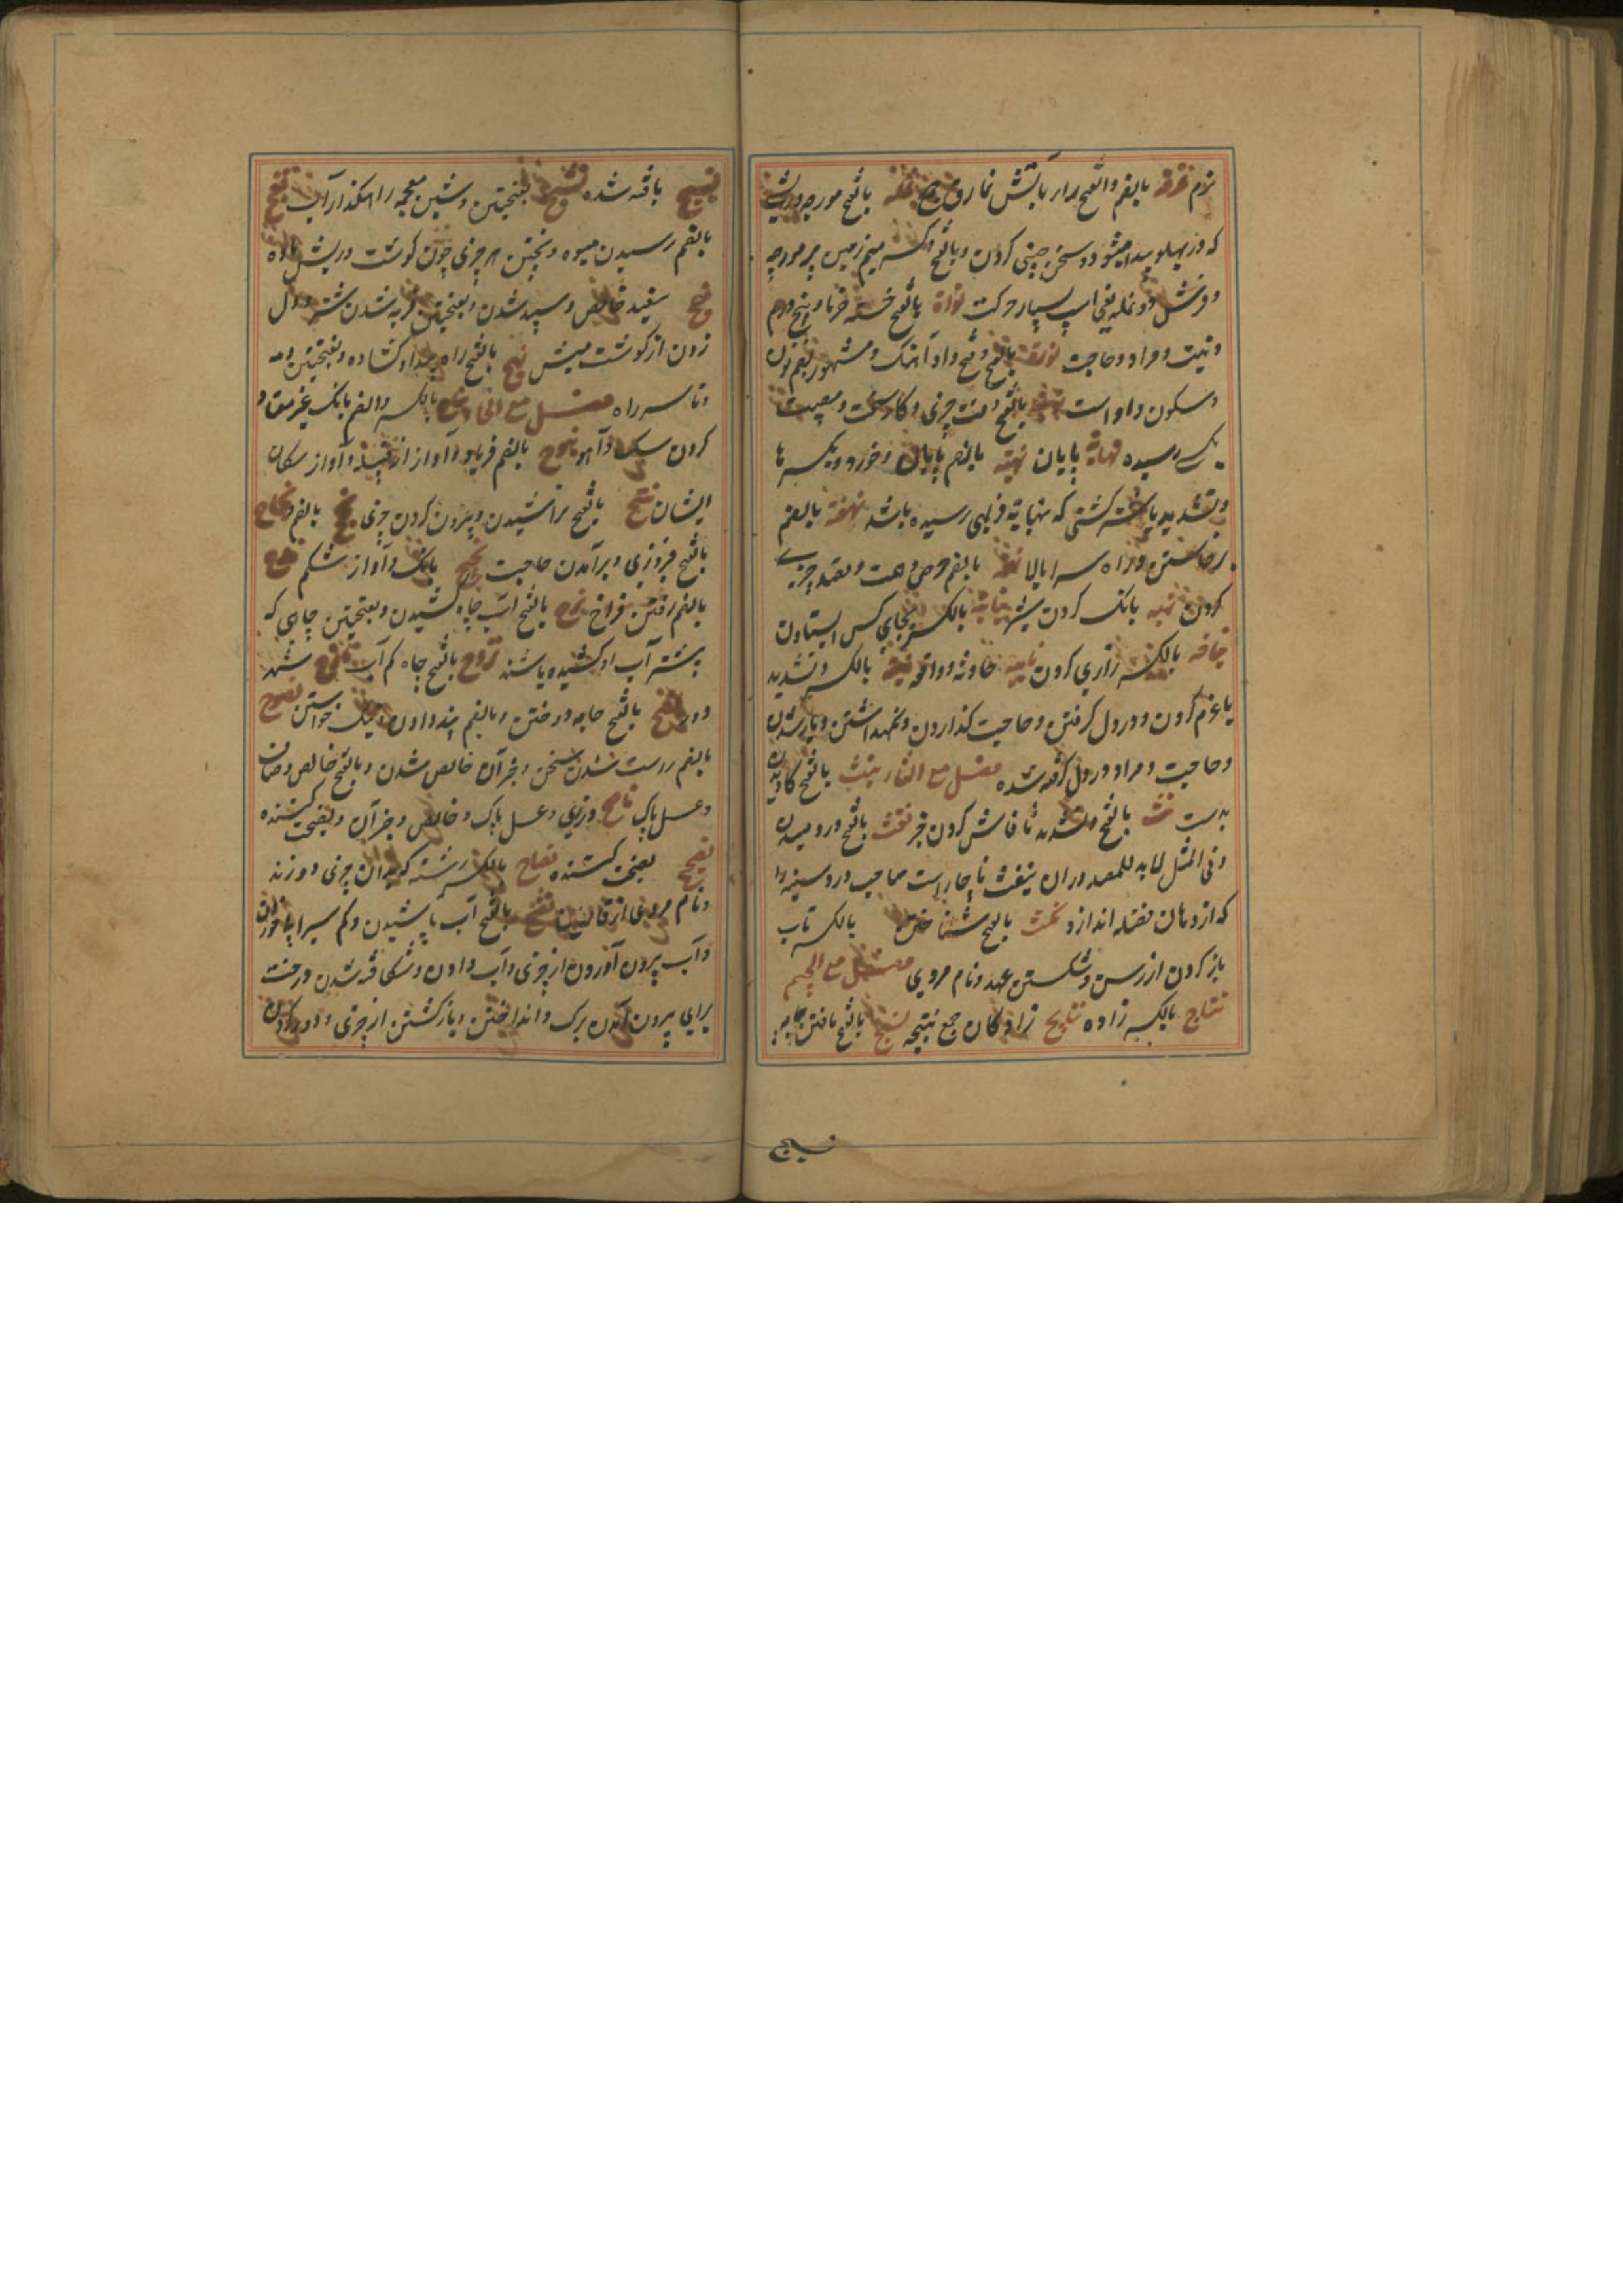 نرم نقره بالضم والفتح
که در پهلو پیدا میشود و سخن چینی کردن و بالفتح و کسر میم زمین پر مورچه
و فرش نملة یعنی اسپ بسیار حرکت نواة بالفتح خسته خرما و پنج درم
و نیت و مراد و حاجت بالفتح و فتح واو آهنک و مشهور بضم نون
و سکون واو است بالفتح چیزی و کار سخت و مصیبت
رسیده نهایة پایان نهیه بالضم پایان و خرد و بکسر ها
و تشدید یا شتر کشتنی که بنهایة فربهی رسیده باشد نهضة بالفتح
برخاستن و راه سر ابالا نهمة بالضم حرص و همت و قصد چیزی
کردن بانک کردن شیر نیابة بالکسر بجای کس ایستادن
نیاحه بالکسر زاری کردن نایبه حادثه و واقعه نیة بالکسر و تشدید
یا عزم کردن و در دل کرفتن و حاجت کذاردن و نکهداشتن و یار شدن
و حاجت و مراد در دل کرفته شده فصل مع الثاء نبث بالفتح کاویدن
بدست نث بالفتح و تشدید ثا فاش کردن خبر نفث بالفتح در دمیدن
و فی المثل لا بد للمصدور ان ینفث ناچار است صاحب درد سینه را
که از دهان فضله اندازد نکث بالفتح بالکسر تاب
باز کردن از رسن و شکستن عهد و نام مردی فصل مع الجیم
نتاج بالکسر زاده نتایج زادکان جمع نتیجه نسج بالفتح بافتن جامه
نسیج
نسیج بافته شده نشج بفتحتین و شین معجمه راهکذار آب نضج
بالضم رسیدن میوه و پختن هر چیزی چون کوشت و ریش و ماده
نعج سفید خالص و سپید شدن و بفتحتین فربه شدن شتر و دل
زدن از کوشت میش نهج بالفتح راه پیدا و کشاده و بفتحتین دمه
و تاسه راه فصل مع الحاء نباح بالکسر والضم بانک
کردن سک و آهو نبوح بالضم فریاد و آواز از قبیله و آواز سکان
ایشان نتح بالفتح تراشیدن و بیرون کردن چیزی نجح بالضم و نجاح
بالفتح فیروزی و برآمدن حاجت نحیح بانک و آواز شکم نزح
بالضم رفتن فراخ نزح بالفتح آب چاه کشیدن و بفتحتین چاهی که
بیشتر آب او کشیده باشند نزوح بالفتح چاه کم آب ناصح شهد
و درزی نصح بالفتح جامه دوختن و بالضم پند دادن و نیک خواستن نصوح
بالضم راست شدن سخن و جز آن خالص شدن و بالفتح خالص و صاف
و عسل پاک ناصح درزی و عسل پاک و خالص و جز آن و نصیحت کننده
نصیح نصیحت کننده نصاح بالکسر رشته که بدان چیزی دوزند
و نام مردی از قاریان نضح بالفتح آب پاشیدن و کم سیراب خوردن
و آب بیرون آوردن از چیزی و آب دادن و شکافته شدن درخت
برای بیرون آمدن برک و انداختن و باز کشتن از چیزی و دور کردن